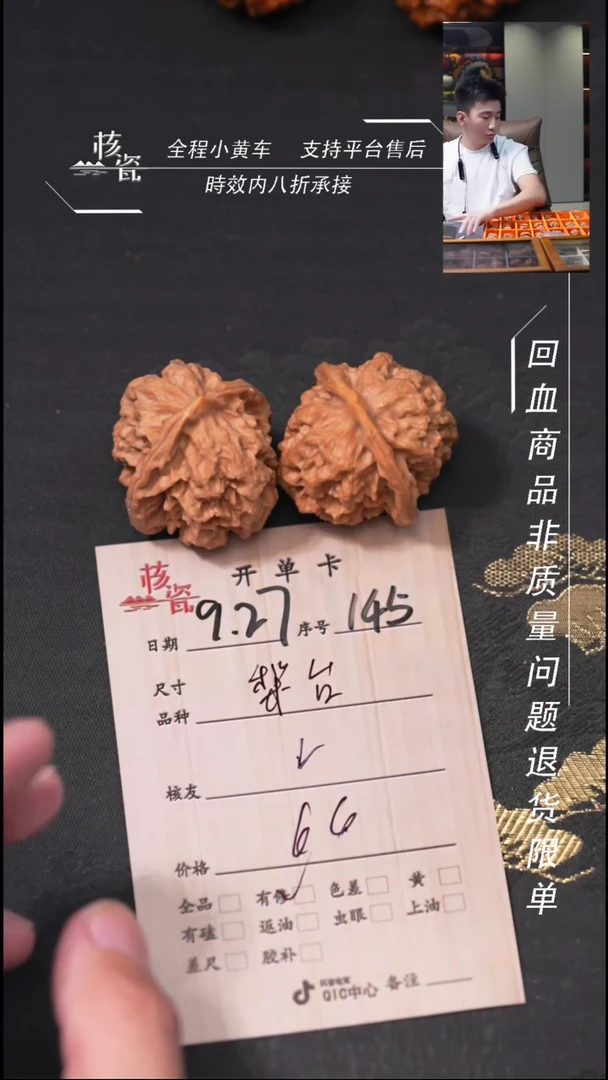 核瓷
全程小黄车 支持平台售后
時效内八折承接
回血商品非质量问题退货限单
核瓷
开单卡
日期 9.27 序号 145
尺寸
品种
核友
价格 66
全品 有修 色差 黄
有磕 返油 虫眼 上油
差尺 胶补
QIC中心 备注